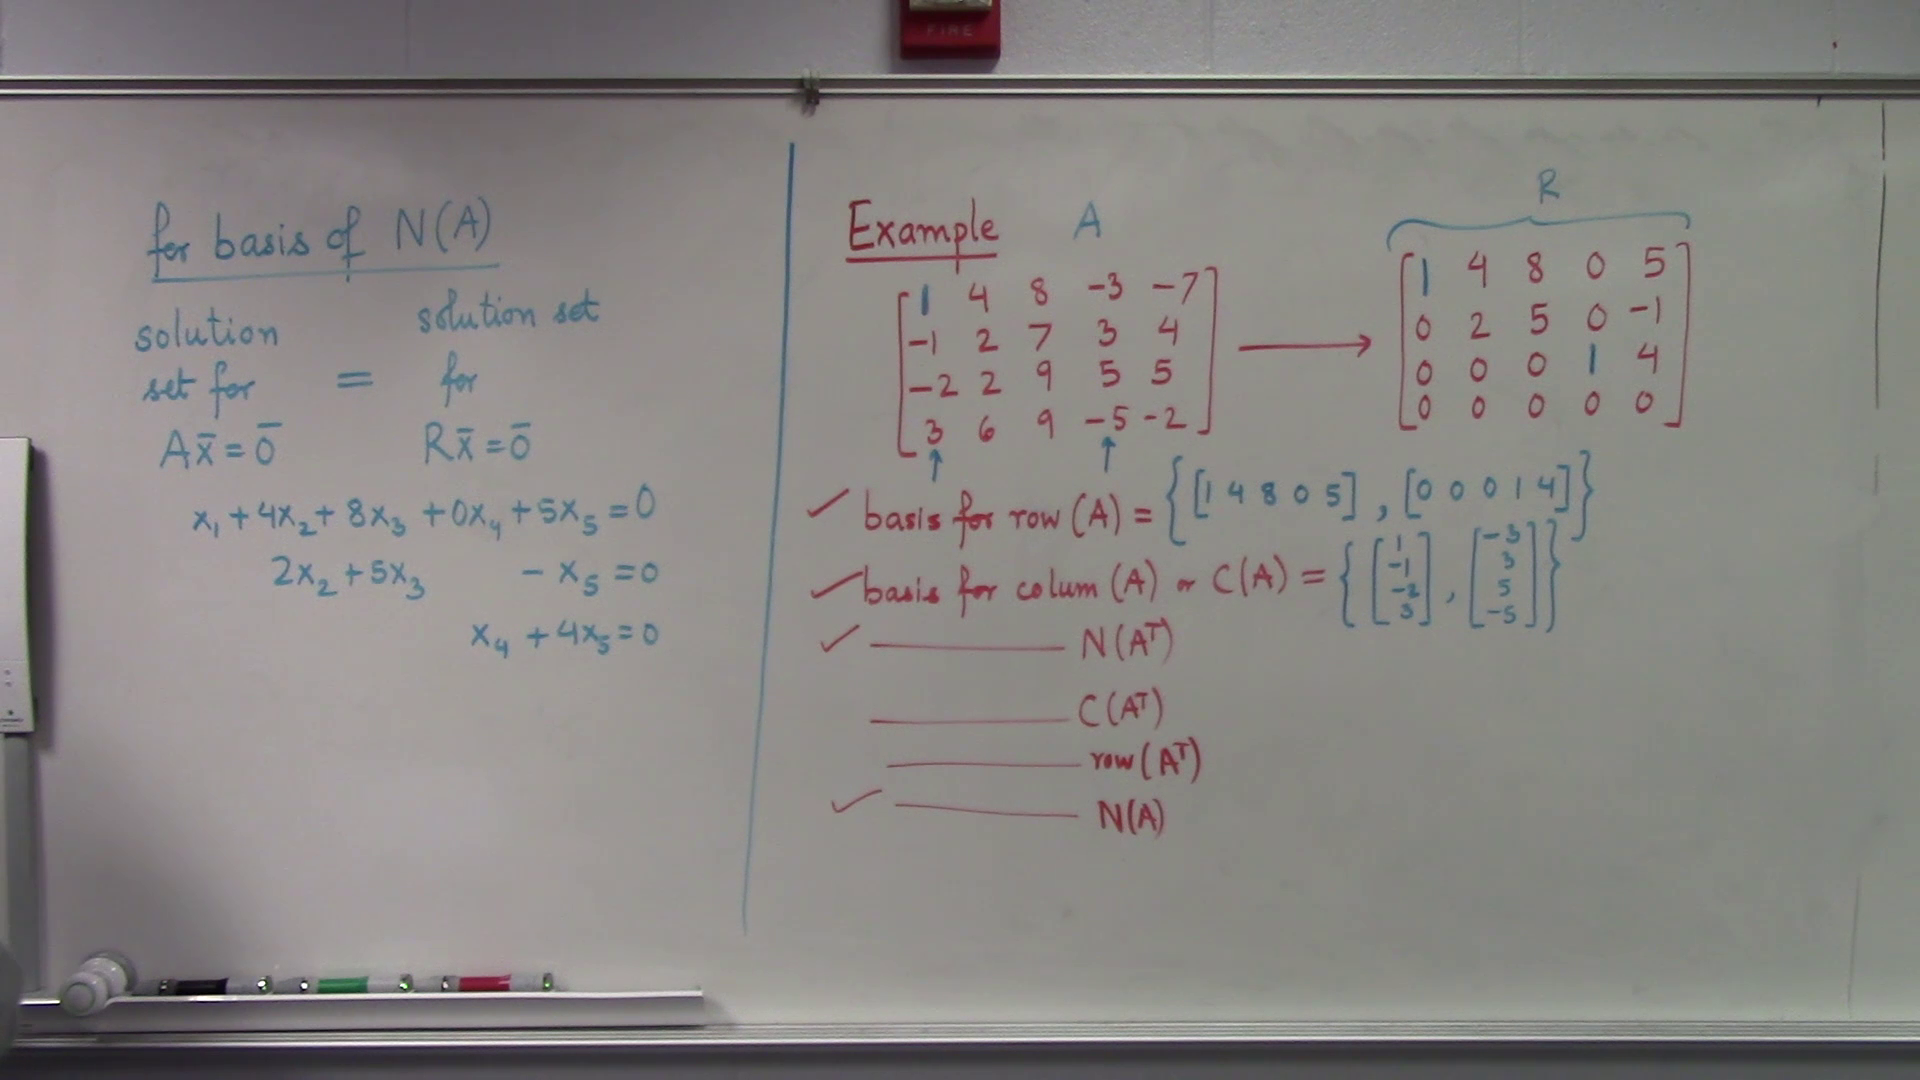 FIRE
for basis of N(A)
solution set for Ax̄ = 0̄ = solution set for Rx̄ = 0̄
x₁ + 4x₂ + 8x₃ + 0x₄ + 5x₅ = 0
2x₂ + 5x₃ - x₅ = 0
x₄ + 4x₅ = 0
Example A
1 4 8 -3 -7
-1 2 7 3 4
-2 2 9 5 5
3 6 9 -5 -2
R
1 4 8 0 5
0 2 5 0 -1
0 0 0 1 4
0 0 0 0 0
basis for row (A) = {[1 4 8 0 5], [0 0 0 1 4]}
basis for colum (A) or C(A) = {[1 -1 -2 3], [-3 3 5 -5]}
N(Aᵀ)
C(Aᵀ)
row(Aᵀ)
N(A)